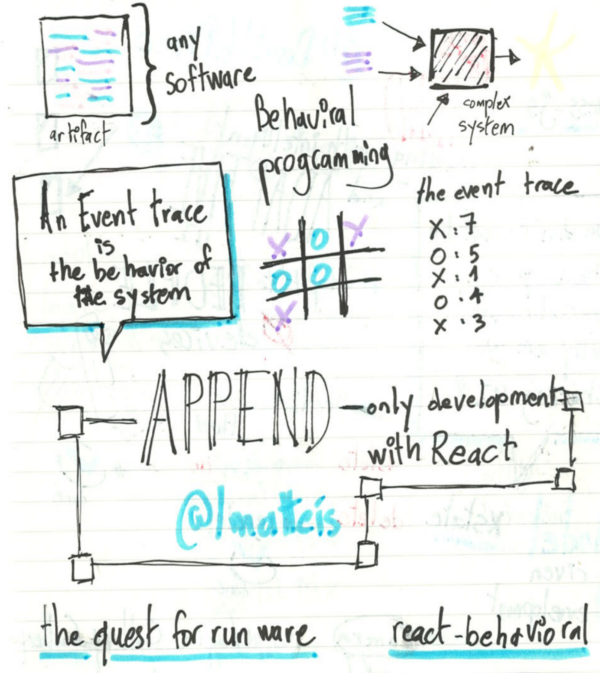 any
software
artifact
complex
system
Behaviral
progamming
An Event trace
is
the behavior of
the system
X O X
O O
X
the event trace
X : 7
O : 5
X : 1
O : 4
X : 3
APPEND -only development
with React
@lmatteis
the quest for run ware
react-behavioral